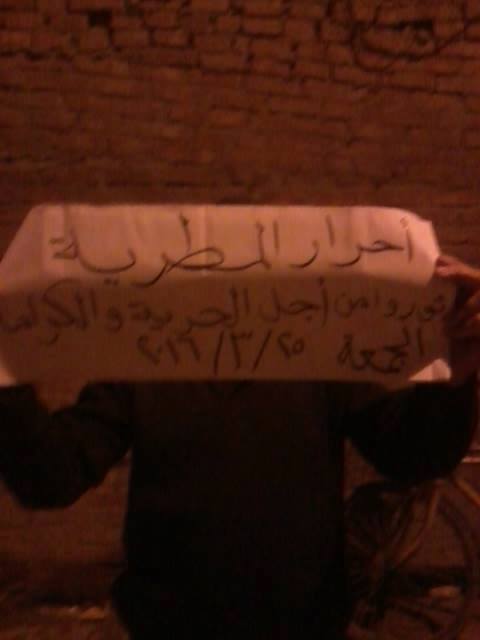 أحرار المطرية
ثوروا من أجل الحرية والكرامة
الجمعة ٢٥/٣/٢٠١٦